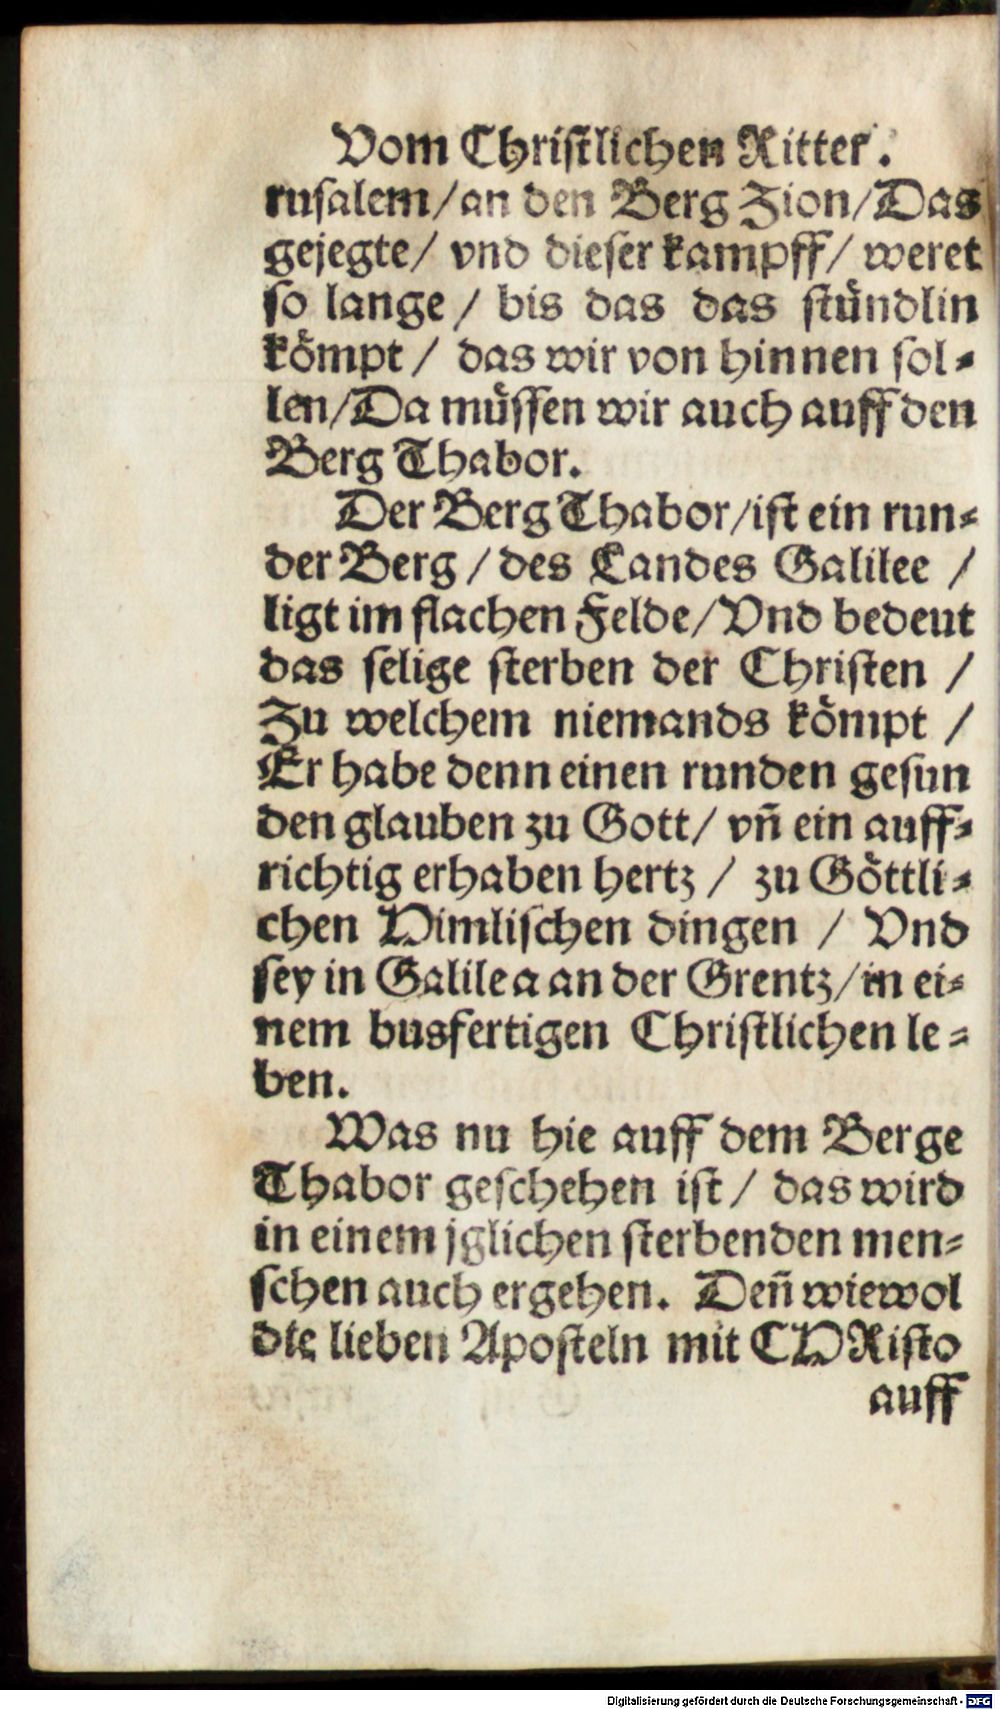 Vom Christlichen Ritter.
rusalem/an den Berg Zion/Das
gejegte/ vnd dieser kampff/ weret
so lange / bis das das stündlin
kömpt / das wir von hinnen sol-
len/Da müssen wir auch auff den
Berg Thabor.
Der Berg Thabor/ist ein run-
der Berg / des Landes Galilee /
ligt im flachen Felde/Vnd bedeut
das selige sterben der Christen /
Zu welchem niemands kömpt /
Er habe denn einen runden gesun
den glauben zu Gott/ vn̄ ein auff-
richtig erhaben hertz / zu Göttli-
chen Himlischen dingen / Vnd
sey in Galilea an der Grentz/in ei-
nem busfertigen Christlichen le-
ben.
Was nu hie auff dem Berge
Thabor geschehen ist / das wird
in einem jglichen sterbenden men-
schen auch ergehen. Den̄ wiewol
die lieben Aposteln mit CHRisto
auff
Digitalisierung gefördert durch die Deutsche Forschungsgemeinschaft - DFG